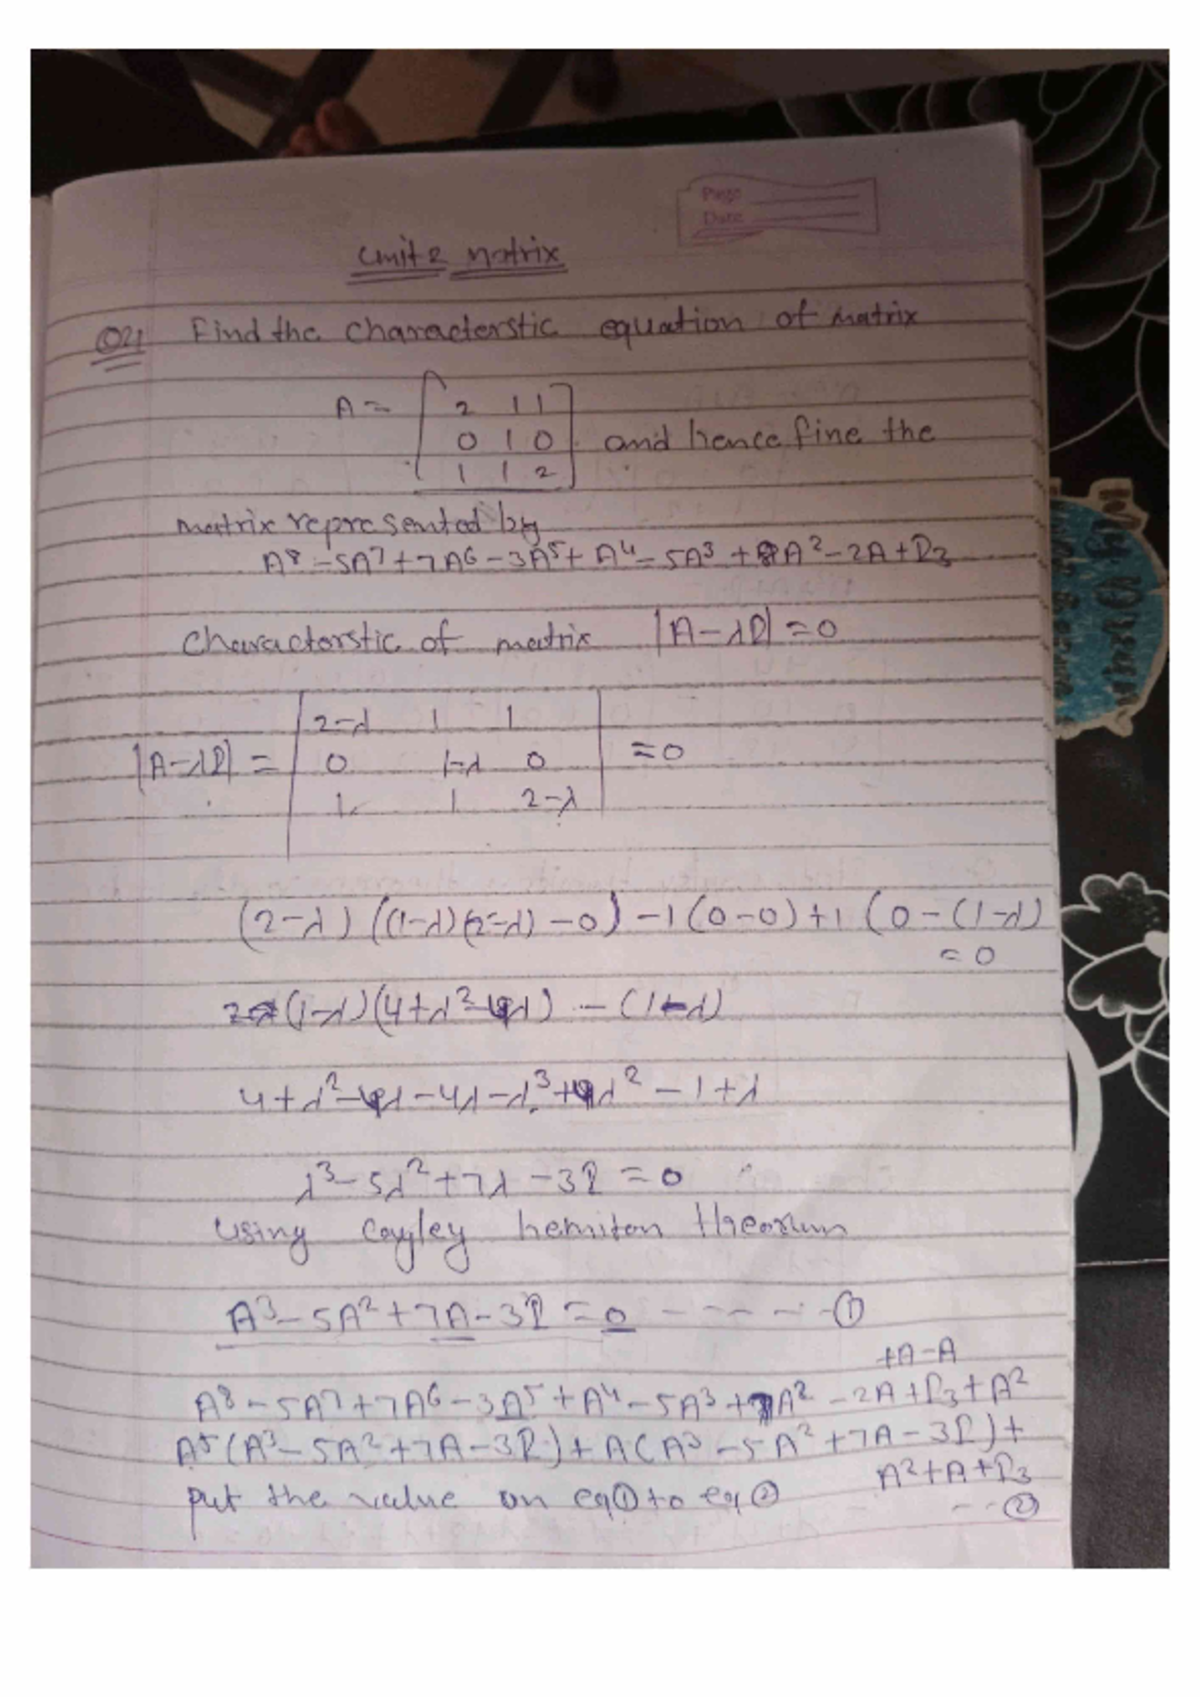 Page
Date
Unit 2 Matrix
Q21 Find the characterstic equation of matrix
A = [ 2 1 1
0 1 0 and hence fine the
1 1 2 ]
matrix represented by
A⁸-5A⁷+7A⁶-3A⁵+A⁴-5A³+8A²-2A+I₃
Characterstic of matrix |A-λI|=0
2-λ 1 1
|A-λI| = 0 1-λ 0 =0
1 1 2-λ
(2-λ) ((1-λ)(2-λ)-0) -1(0-0)+1(0-(1-λ)
=0
(1-λ)(4+λ²-4λ) - (1-λ)
4+λ²-4λ-4λ-λ³+4λ²-1+λ
λ³-5λ²+7λ-3I=0
Using Cayley hemiton thearum
A³-5A²+7A-3I=0 ----- ①
+A-A
A⁸-5A⁷+7A⁶-3A⁵+A⁴-5A³+7A²-2A+I₃+A²
A⁵(A³-5A²+7A-3I)+A(A³-5A²+7A-3I)+
A²+A+I₃
put the value on eq① to eq② --②